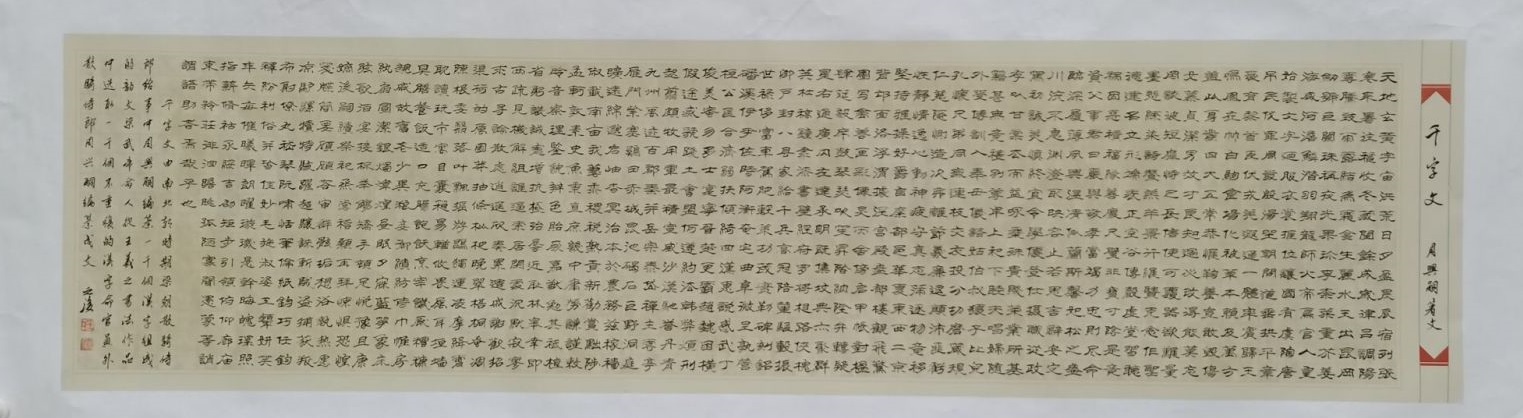 千字文 周興嗣著文
天地玄黃宇宙洪荒日月盈昃辰宿列張
寒來暑往秋收冬藏閏餘成歲律呂調陽
雲騰致雨露結為霜金生麗水玉出崑岡
劍號巨闕珠稱夜光果珍李柰菜重芥姜
海鹹河淡鱗潛羽翔龍師火帝鳥官人皇
始製文字乃服衣裳推位讓國有虞陶唐
弔民伐罪周發殷湯坐朝問道垂拱平章
愛育黎首臣伏戎羌遐邇一體率賓歸王
鳴鳳在竹白駒食場化被草木賴及萬方
蓋此身髮四大五常恭惟鞠養豈敢毀傷
女慕貞潔男效才良知過必改得能莫忘
罔談彼短靡恃己長信使可覆器欲難量
墨悲絲染詩讚羔羊景行維賢克念作聖
德建名立形端表正空谷傳聲虛堂習聽
禍因惡積福緣善慶尺璧非寶寸陰是競
資父事君曰嚴與敬孝當竭力忠則盡命
臨深履薄夙興溫凊似蘭斯馨如松之盛
川流不息淵澄取映容止若思言辭安定
篤初誠美慎終宜令榮業所基籍甚無竟
學優登仕攝職從政存以甘棠去而益詠
樂殊貴賤禮別尊卑上和下睦夫唱婦隨
外受傅訓入奉母儀諸姑伯叔猶子比兒
孔懷兄弟同氣連枝交友投分切磨箴規
仁慈隱惻造次弗離節義廉退顛沛匪虧
性靜情逸心動神疲守真志滿逐物意移
堅持雅操好爵自縻都邑華夏東西二京
背邙面洛浮渭據涇宮殿盤鬱樓觀飛驚
圖寫禽獸畫彩仙靈丙舍傍啟甲帳對楹
肆筵設席鼓瑟吹笙升階納陛弁轉疑星
右通廣內左達承明既集墳典亦聚群英
杜稿鍾隸漆書壁經府羅將相路俠槐卿
戶封八縣家給千兵高冠陪輦驅轂振纓
世祿侈富車駕肥輕策功茂實勒碑刻銘
磻溪伊尹佐時阿衡奄宅曲阜微旦孰營
桓公匡合濟弱扶傾綺回漢惠說感武丁
俊乂密勿多士寔寧晉楚更霸趙魏困橫
假途滅虢踐土會盟何遵約法韓弊煩刑
起翦頗牧用軍最精宣威沙漠馳譽丹青
九州禹跡百郡秦并嶽宗泰岱禪主云亭
雁門紫塞雞田赤城昆池碣石鉅野洞庭
曠遠綿邈巖岫杳冥治本於農務茲稼穡
俶載南畝我藝黍稷稅熟貢新勸賞黜陟
孟軻敦素史魚秉直庶幾中庸勞謙謹敕
聆音察理鑒貌辨色貽厥嘉猷勉其祗植
省躬譏誡寵增抗極殆辱近恥林皋幸即
兩疏見機解組誰逼索居閒處沉默寂寥
求古尋論散慮逍遙欣奏累遣慼謝歡招
渠荷的歷園莽抽條枇杷晚翠梧桐早凋
陳根委翳落葉飄颻遊鵾獨運凌摩絳霄
耽讀玩市寓目囊箱易輶攸畏屬耳垣牆
具膳餐飯適口充腸飽飫烹宰飢厭糟糠
親戚故舊老少異糧妾御績紡侍巾帷房
紈扇圓潔銀燭煒煌晝眠夕寐藍筍象床
弦歌酒宴接杯舉觴矯手頓足悅豫且康
嫡後嗣續祭祀烝嘗稽顙再拜悚懼恐惶
箋牒簡要顧答審詳骸垢想浴執熱願涼
驢騾犢特駭躍超驤誅斬賊盜捕獲叛亡
布射僚丸嵇琴阮嘯恬筆倫紙鈞巧任釣
釋紛利俗並皆佳妙毛施淑姿工顰妍笑
年矢每催曦暉朗曜璇璣懸斡晦魄環照
指薪修祜永綏吉劭矩步引領俯仰廊廟
束帶矜莊徘徊瞻眺孤陋寡聞愚蒙等誚
謂語助者焉哉乎也
千字文由南北朝時期梁朝散騎侍
郎給事中周興嗣編纂一千個漢字組成
的韻文梁武帝命人從王羲之書法作品
中選取一千個不重複的漢字命官員外
散騎侍郎周興嗣編纂成文